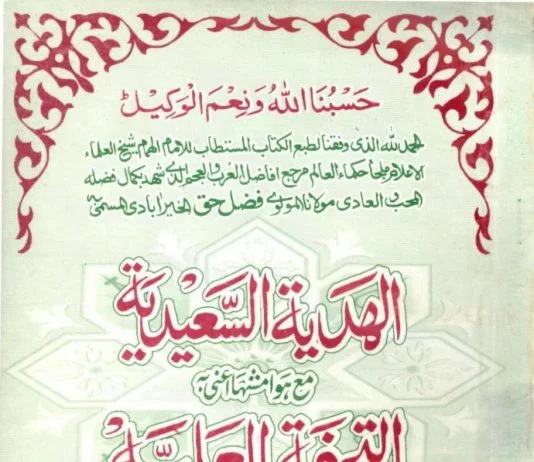 حَسْبُنَا اللهُ وَنِعْمَ الْوَكِيلُ
الحمد لله الذى وفقنا لطبع الكتاب المستطاب للامام الهمام شيخ العلماء
الاعلام ملجأ حكماء العالم مرجع افاضل العرب والعجم الذى شهد بكمال فضله
المحب والعادى مولانا المولوى فضل حق الخيرآبادى المسمى بہ
الهَدية السَّعيدية
مع هوامشها اعنى بہ
التحفة العلية